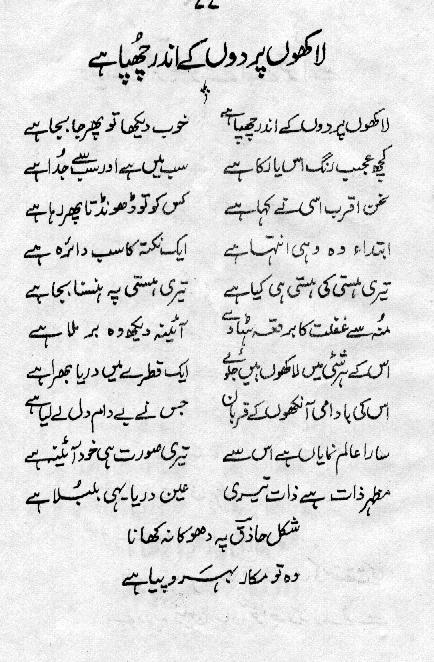 ۲۲
لاکھوں پردوں کے اندر چھُپا ہے
لاکھوں پردوں کے اندر چھپا ہے خوب دیکھا تو پھر جا بجا ہے
کچھ عجیب رنگ اس یار کا ہے سب میں ہے اور سب سے جُدا ہے
نحن اقرب اسی نے کہا ہے کس کو تو ڈھونڈتا پھر رہا ہے
ابتداء وہ وہی انتہا ہے ایک نکتہ کا سب دائرہ ہے
تیری ہستی کی ہستی ہی کیا ہے تیری ہستی پہ ہنسنا بجا ہے
منُہ سے غفلت کا برقعہ ہٹا دے آئینہ دیکھ وہ بر ملا ہے
اس کے ہر شئی میں لاکھوں ہیں جلوے ایک قطرے میں دریا بھرا ہے
اس کی بادامی آنکھوں کے قربان جس نے بے دام دل لے لیا ہے
سارا عالم نمایاں ہے اس سے تیری صورت ہی خود آئینہ ہے
مظہر ذات ہے ذات تیری عین دریا یہی بلبُلا ہے
شکل حاذقؔ پہ دھوکا نہ کھانا
وہ تو مکار بہروپیا ہے